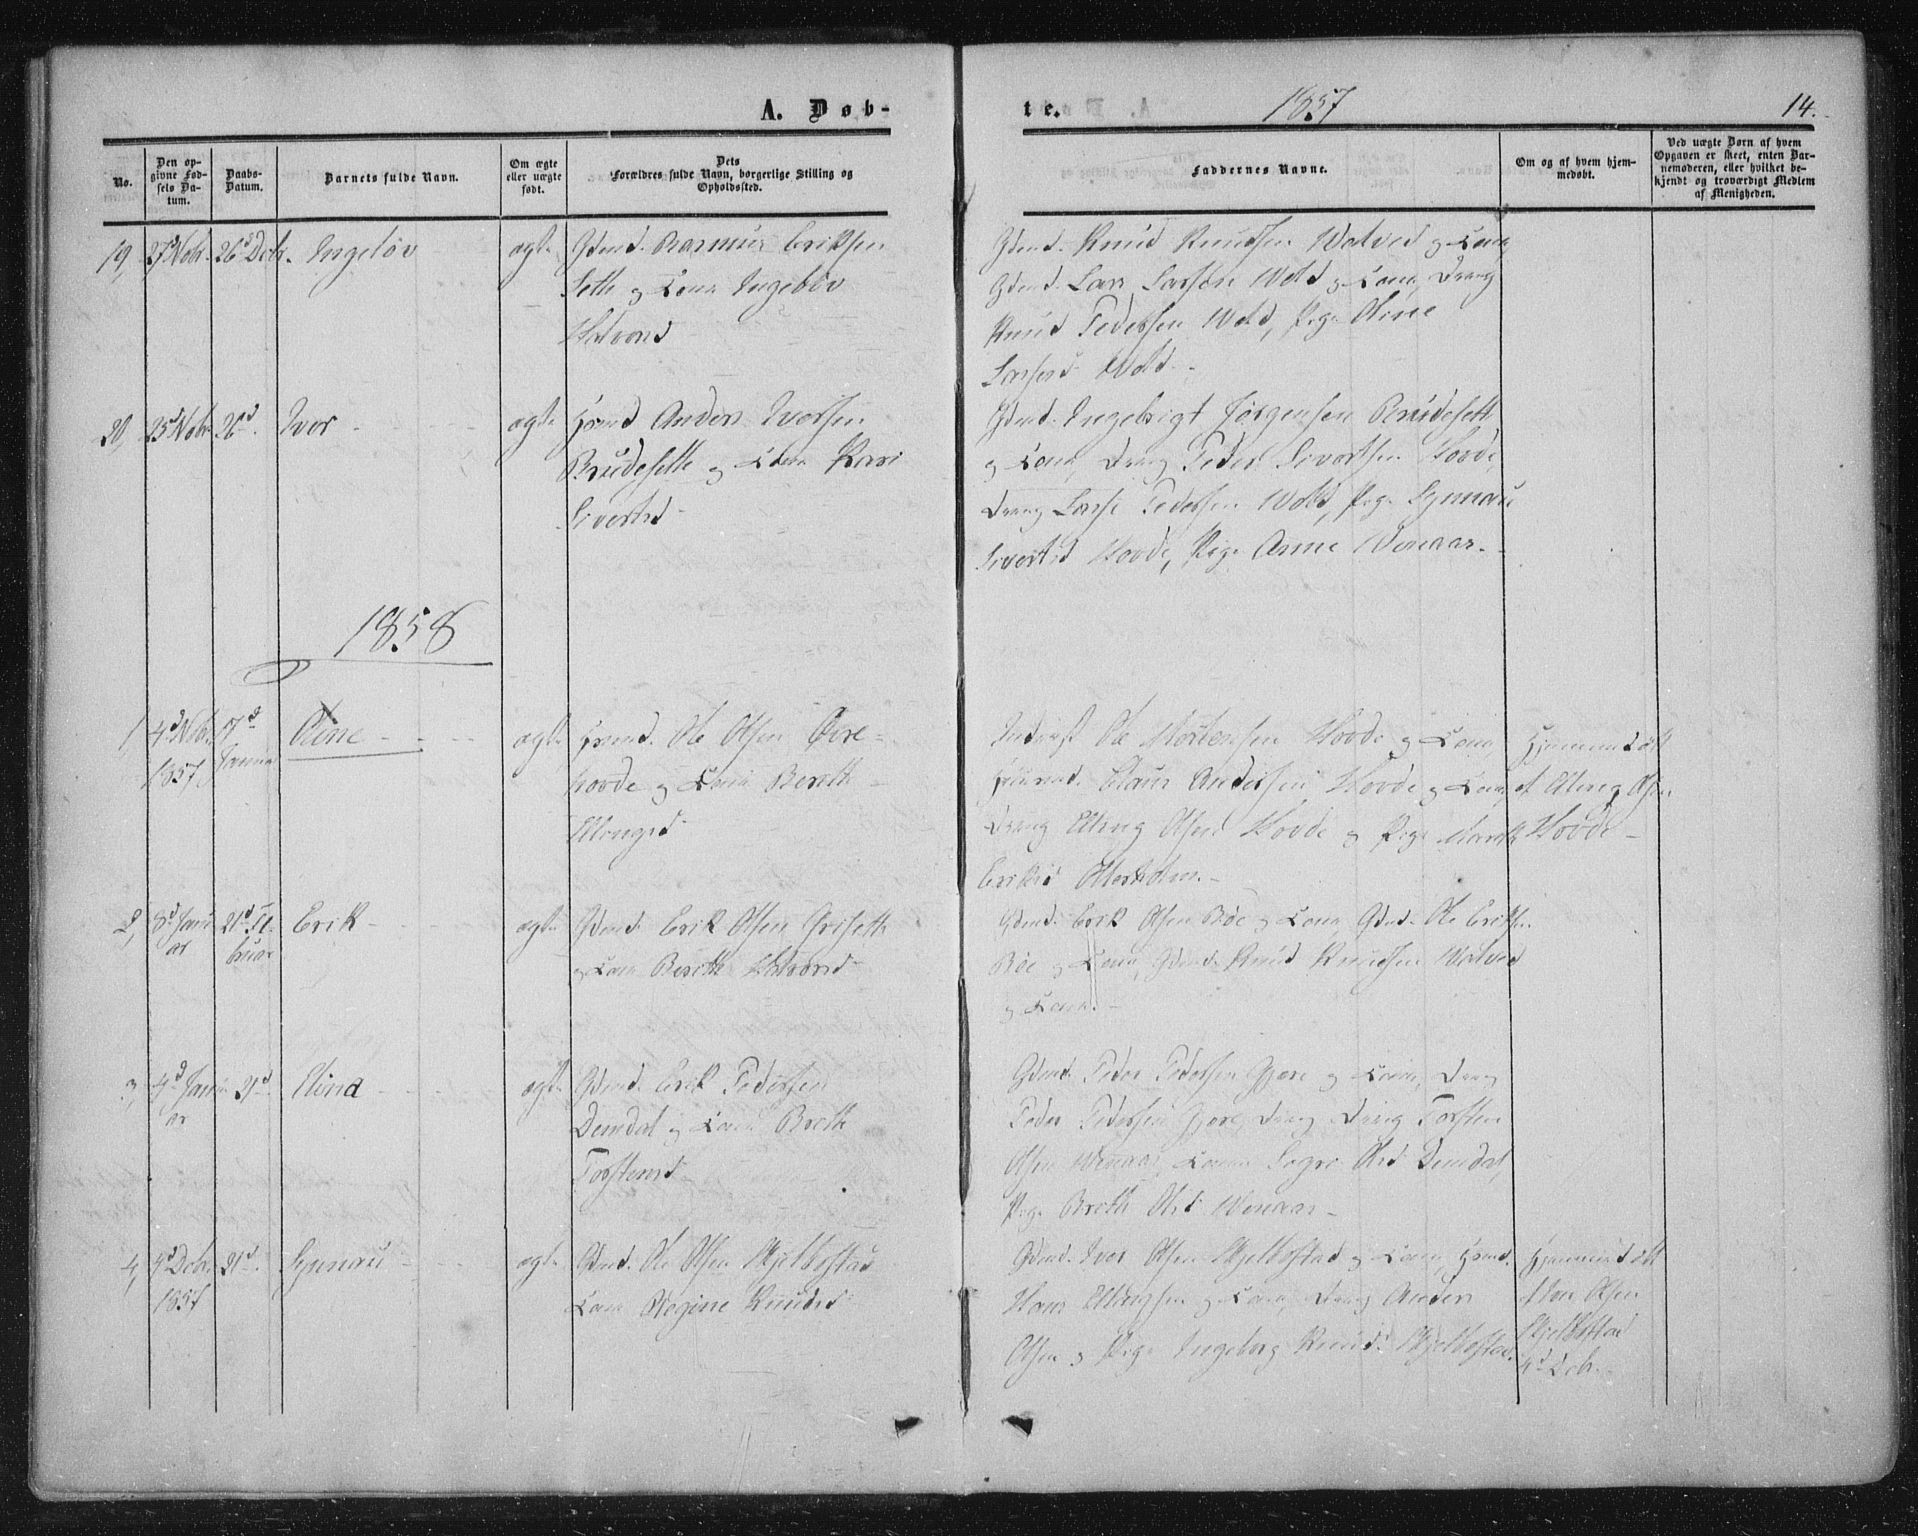 A. Døb-
te.
1857
14.
No.
Den op-
givne Fød-
sels Da-
tum.
Daabs-
Datum.
Barnets fulde Navn.
Om ægte
eller uægte
født.
Dets
Forældres fulde Navn, borgerlige Stilling og
Opholdssted.
Faddernes Navne.
Om og af hvem hjem-
medøbt.
Ved uægte Børn af hvem
Opgaven er skeet, enten Bar-
nemoderen, eller hvilket be-
kjendt og troværdigt Medlem
af Menigheden.
19, 27d Nobr. 26d Decbr. Ingeløv ægte Gdmd. Rasmus Eriksen
Sette og Kona Ingebör
Halvorsd
Gdmd. Knud Knudsen Watved og Kona,
Gdmd. Lars Larsen Wold og Kona, Dreng
Knud Pedersen Wold, Pige Oline
Larsend Wold.
20, 25d Nobr. 26d. Iver ægte Hsmd Anders Iversen
Brudesette og Kona Kari
Sivertsd
Gdmd. Ingebrigt Jørgensen Brudesett
og Kona, Dreng Peder Sivertsen Hovde,
Dreng Lasse Pedersen Wold, Pige Synnøu
Sivertsd Hovde, Pige Anne Wenaas.
1858
1, 4d Nobr. 17d Oline ægte Hsmd. Ole Olsen Øvre-
1857 Januar hovde og Kona Bereth
Ellingsd
Inderst Ole Mortensen Hovde og Kona,
Claus Andersen Hovde og Kona,
Dreng Elling Olsen Hovde og Pige Mareth
Eriksd Otterholm.
Hjemmedøbt
af Elling Olsen
Hovde
2, 8d Janu 21d Fe- Erik ægte Gdmd. Erik Olsen Grisett
ar bruar og Kona Bereth Halvorsd
Gdmd. Erik Olsen Böe og Kona, Gdmd. Ole Eriksen
Böe og Kona, Gdmd. Knud Knudsen Watved
og Kona.
3, 4d Janu 21d. Elina ægte Gdmd. Erik Pedersen
ar Demdal og Kona Breth
Torstensd
Gdmd. Peder Pedersen Gjøre og Kona, Dreng
Peder Pedersen Gjøre, Dreng Dreng Torsten
Olsen Wenaas, Kona Olsd Demdal,
Pige Breth Olsd Wenaas
4, 4d Decbr. 21d. Synnøu ægte Gdmd. Ole Olsen Skjelbostad
1857 Kona Regine Knudsd
Gdmd. Iver Olsen Skjelbostad og Kona, Hsmd.
Hans Ellingsen og Kona Dreng Anders
Olsen og Pige Ingeborg Knudsd Skjelbostad.
Hjemmedøbt
af Iver Olsen
Skjelbostad
4d Decbr.